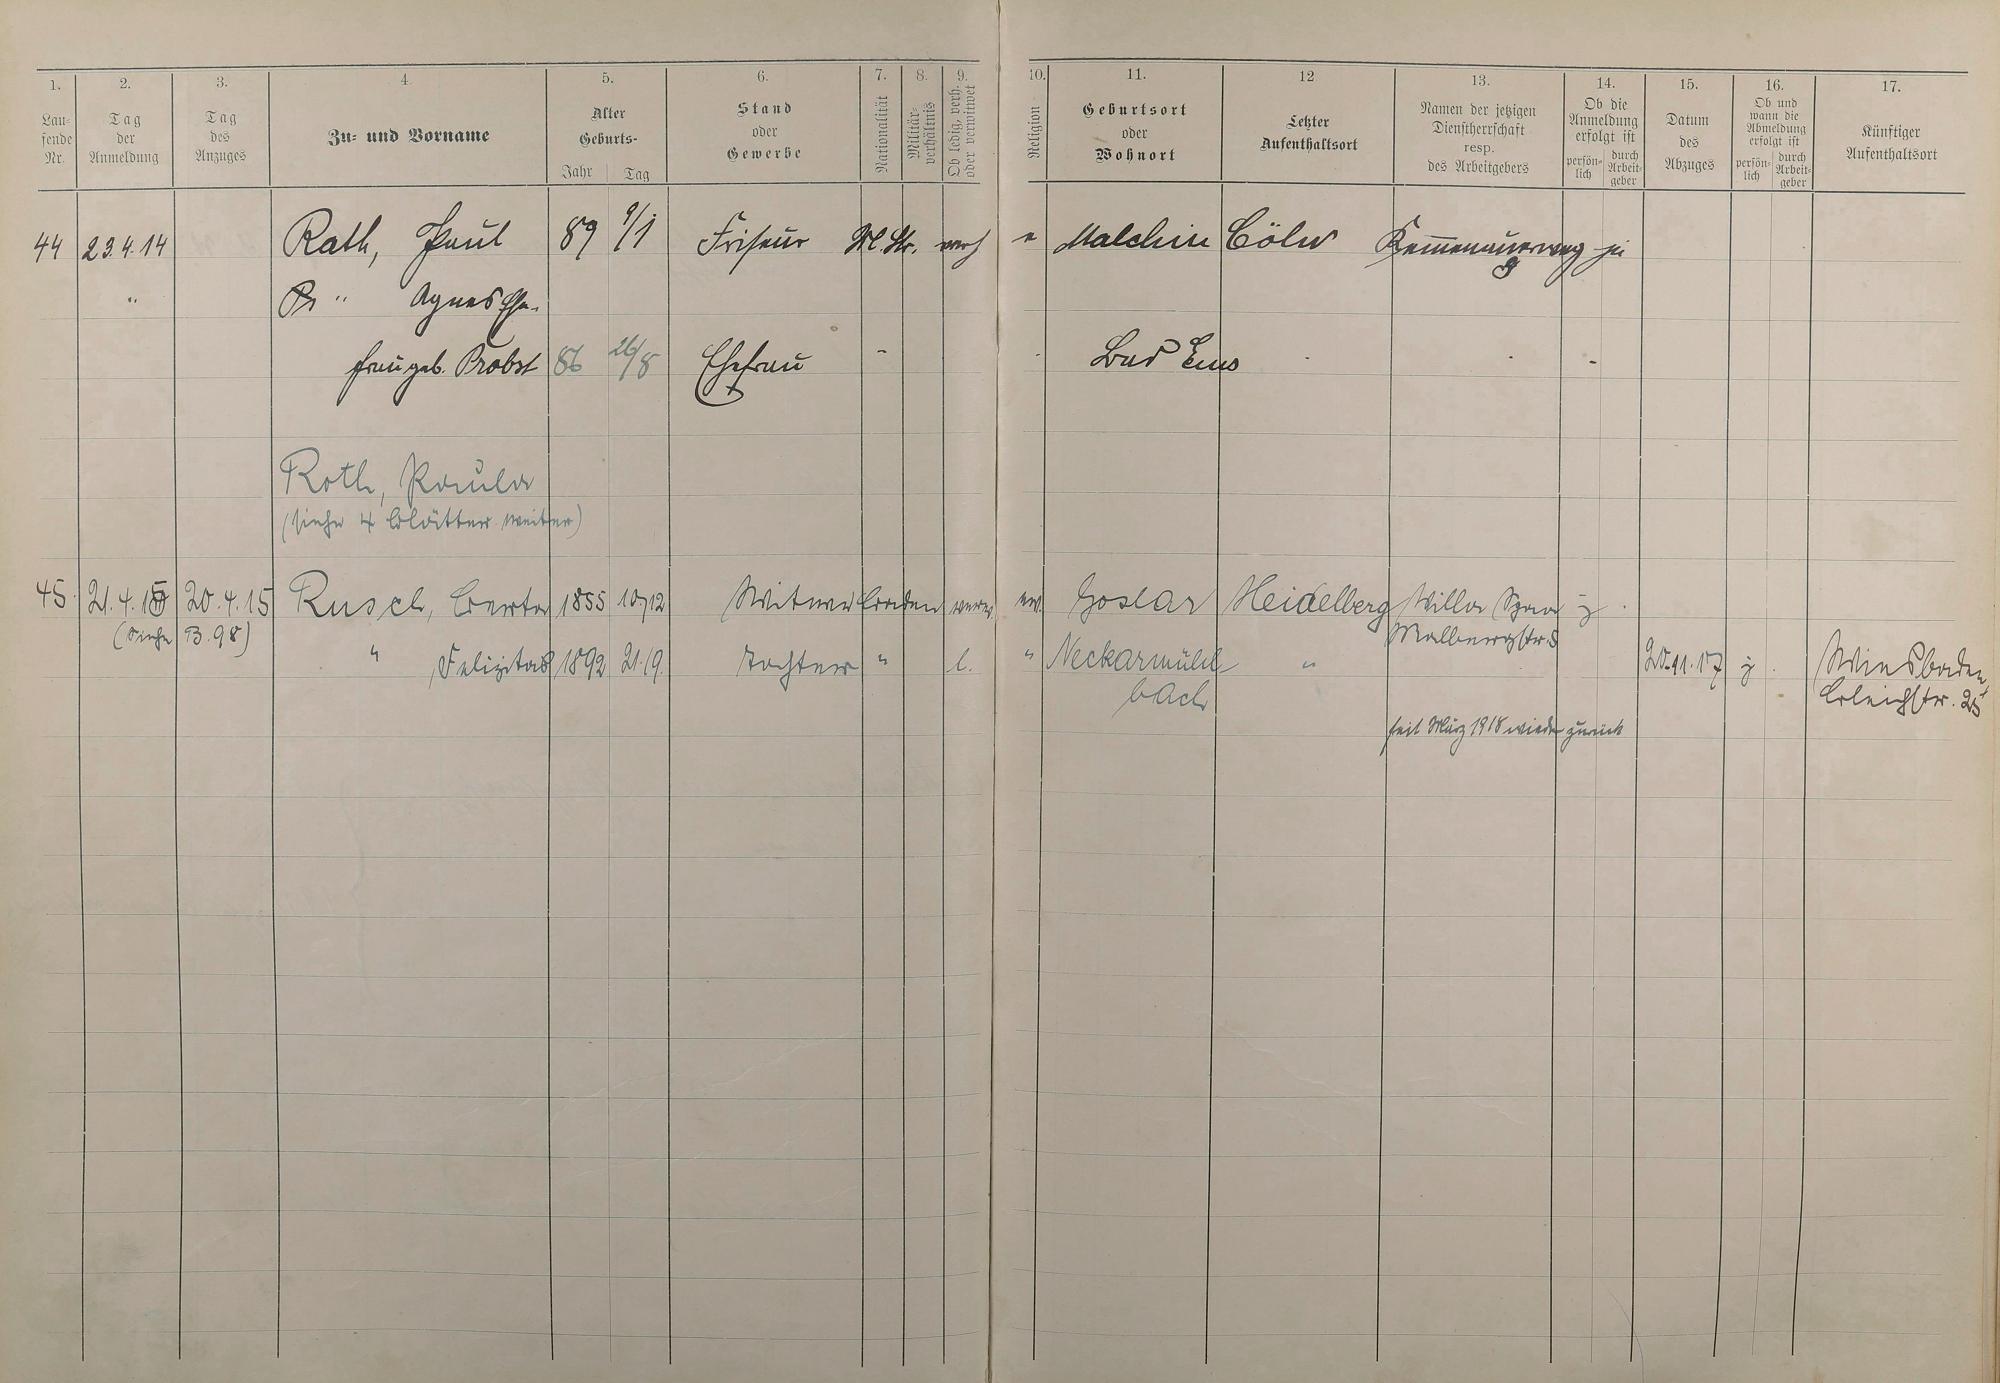 1. 2. 3. 4 5. 6. 7. 8. 9. 10. 11. 12 13. 14. 15. 16. 17.
Lau-
fende
Nr.
Tag
der
Anmeldung
Tag
des
Anzuges
Zu- und Vorname
Alter
Geburts-
Jahr Tag
Stand
oder
Gewerbe
Nationalität
Militär-
verhältnis
Ob ledig, verh.
oder verwitwet
Religion
Geburtsort
oder
Wohnort
Letzter
Aufenthaltsort
Namen der jetzigen
Dienstherrschaft
resp.
des Arbeitgebers
Ob die
Anmeldung
erfolgt ist
persön-
lich
durch
Arbeit-
geber
Datum
des
Abzuges
Ob und
wann die
Abmeldung
erfolgt ist
persön-
lich
durch
Arbeit-
geber
Künftiger
Aufenthaltsort
44 23.4.14 Rath, Paul 89 9/1 Friseur M. Str. verh e Malchin Cöln Kemmenauerweg ja
8
" " Agnes Ehe-
frau geb. Probst 86 26/8 Ehefrau - Bad Ems
Roth, Paula
(siehe 4 Blätter weiter)
45. 21.4.15 20.4.15 Rusch, Berta 1855 10/12 Witwe Baden verw. ev. Goslar Heidelberg Villa Spaa j.
(Siehe B. 98) Malbergstr. 5
" Felizitas 1892 21.9. Tochter " l. " Neckarmühl- " 20.11.17 j. Wiesbaden
bach Bleichstr. 25
seit März 1918 wieder zurück